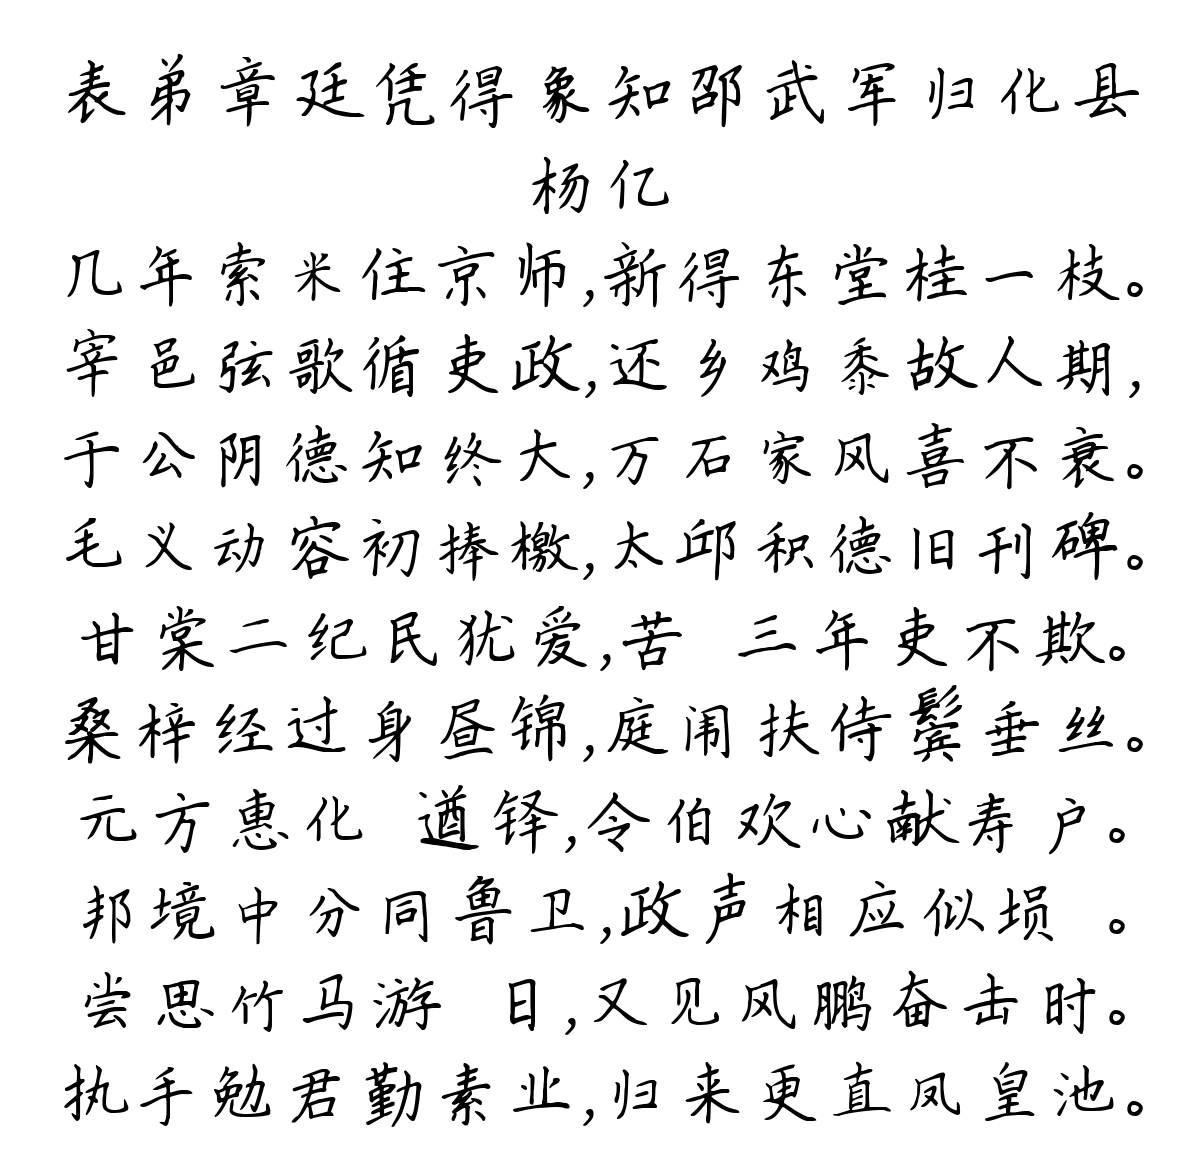 表弟章廷凭得象知邵武军归化县
杨亿
几年索米住京师,新得东堂桂一枝。
宰邑弦歌循吏政,还乡鸡黍故人期,
于公阴德知终大,万石家风喜不衰。
毛义动容初捧檄,太邱积德旧刊碑。
甘棠二纪民犹爱,苦 三年吏不欺。
桑梓经过身昼锦,庭闹扶侍鬓垂丝。
元方惠化 遒铎,令伯欢心献寿户。
邦境中分同鲁卫,政声相应似埙 。
尝思竹马游 日,又见风鹏奋击时。
执手勉君勤素业,归来更直凤皇池。